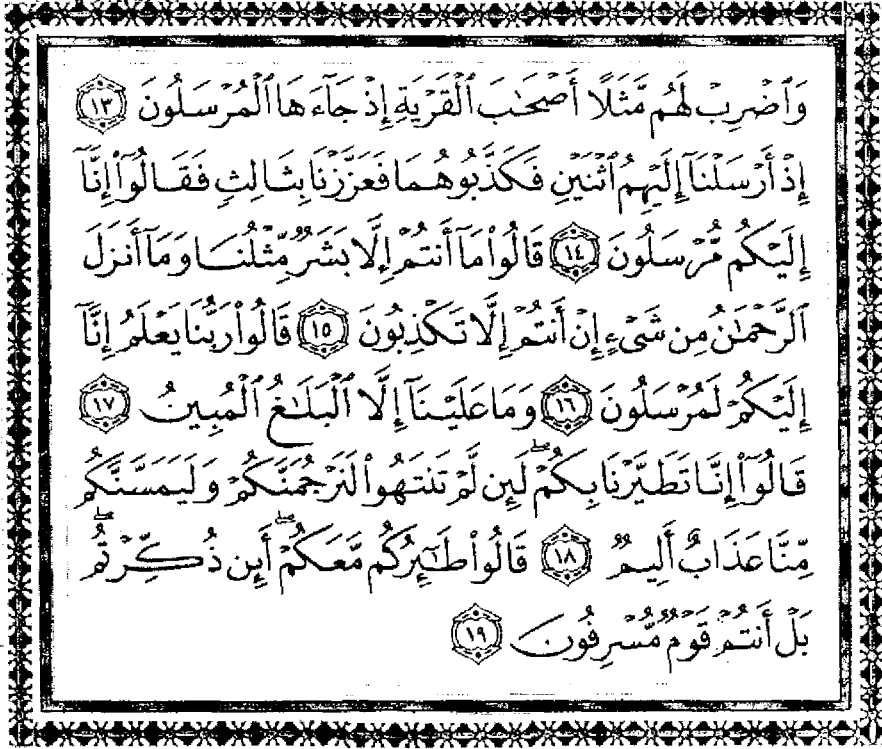 وَٱضْرِبْ لَهُم مَّثَلًا أَصْحَٰبَ ٱلْقَرْيَةِ إِذْ جَآءَهَا ٱلْمُرْسَلُونَ ١٣
إِذْ أَرْسَلْنَآ إِلَيْهِمُ ٱثْنَيْنِ فَكَذَّبُوهُمَا فَعَزَّزْنَا بِثَالِثٍ فَقَالُوٓا۟ إِنَّآ
إِلَيْكُم مُّرْسَلُونَ ١٤ قَالُوا۟ مَآ أَنتُمْ إِلَّا بَشَرٌ مِّثْلُنَا وَمَآ أَنزَلَ
ٱلرَّحْمَٰنُ مِن شَىْءٍ إِنْ أَنتُمْ إِلَّا تَكْذِبُونَ ١٥ قَالُوا۟ رَبُّنَا يَعْلَمُ إِنَّآ
إِلَيْكُمْ لَمُرْسَلُونَ ١٦ وَمَا عَلَيْنَآ إِلَّا ٱلْبَلَٰغُ ٱلْمُبِينُ ١٧
قَالُوٓا۟ إِنَّا تَطَيَّرْنَا بِكُمْ ۖ لَئِن لَّمْ تَنتَهُوا۟ لَنَرْجُمَنَّكُمْ وَلَيَمَسَّنَّكُم
مِّنَّا عَذَابٌ أَلِيمٌ ١٨ قَالُوا۟ طَٰٓئِرُكُم مَّعَكُمْ ۖ أَئِن ذُكِّرْتُم ۖ
بَلْ أَنتُمْ قَوْمٌ مُّسْرِفُونَ ١٩